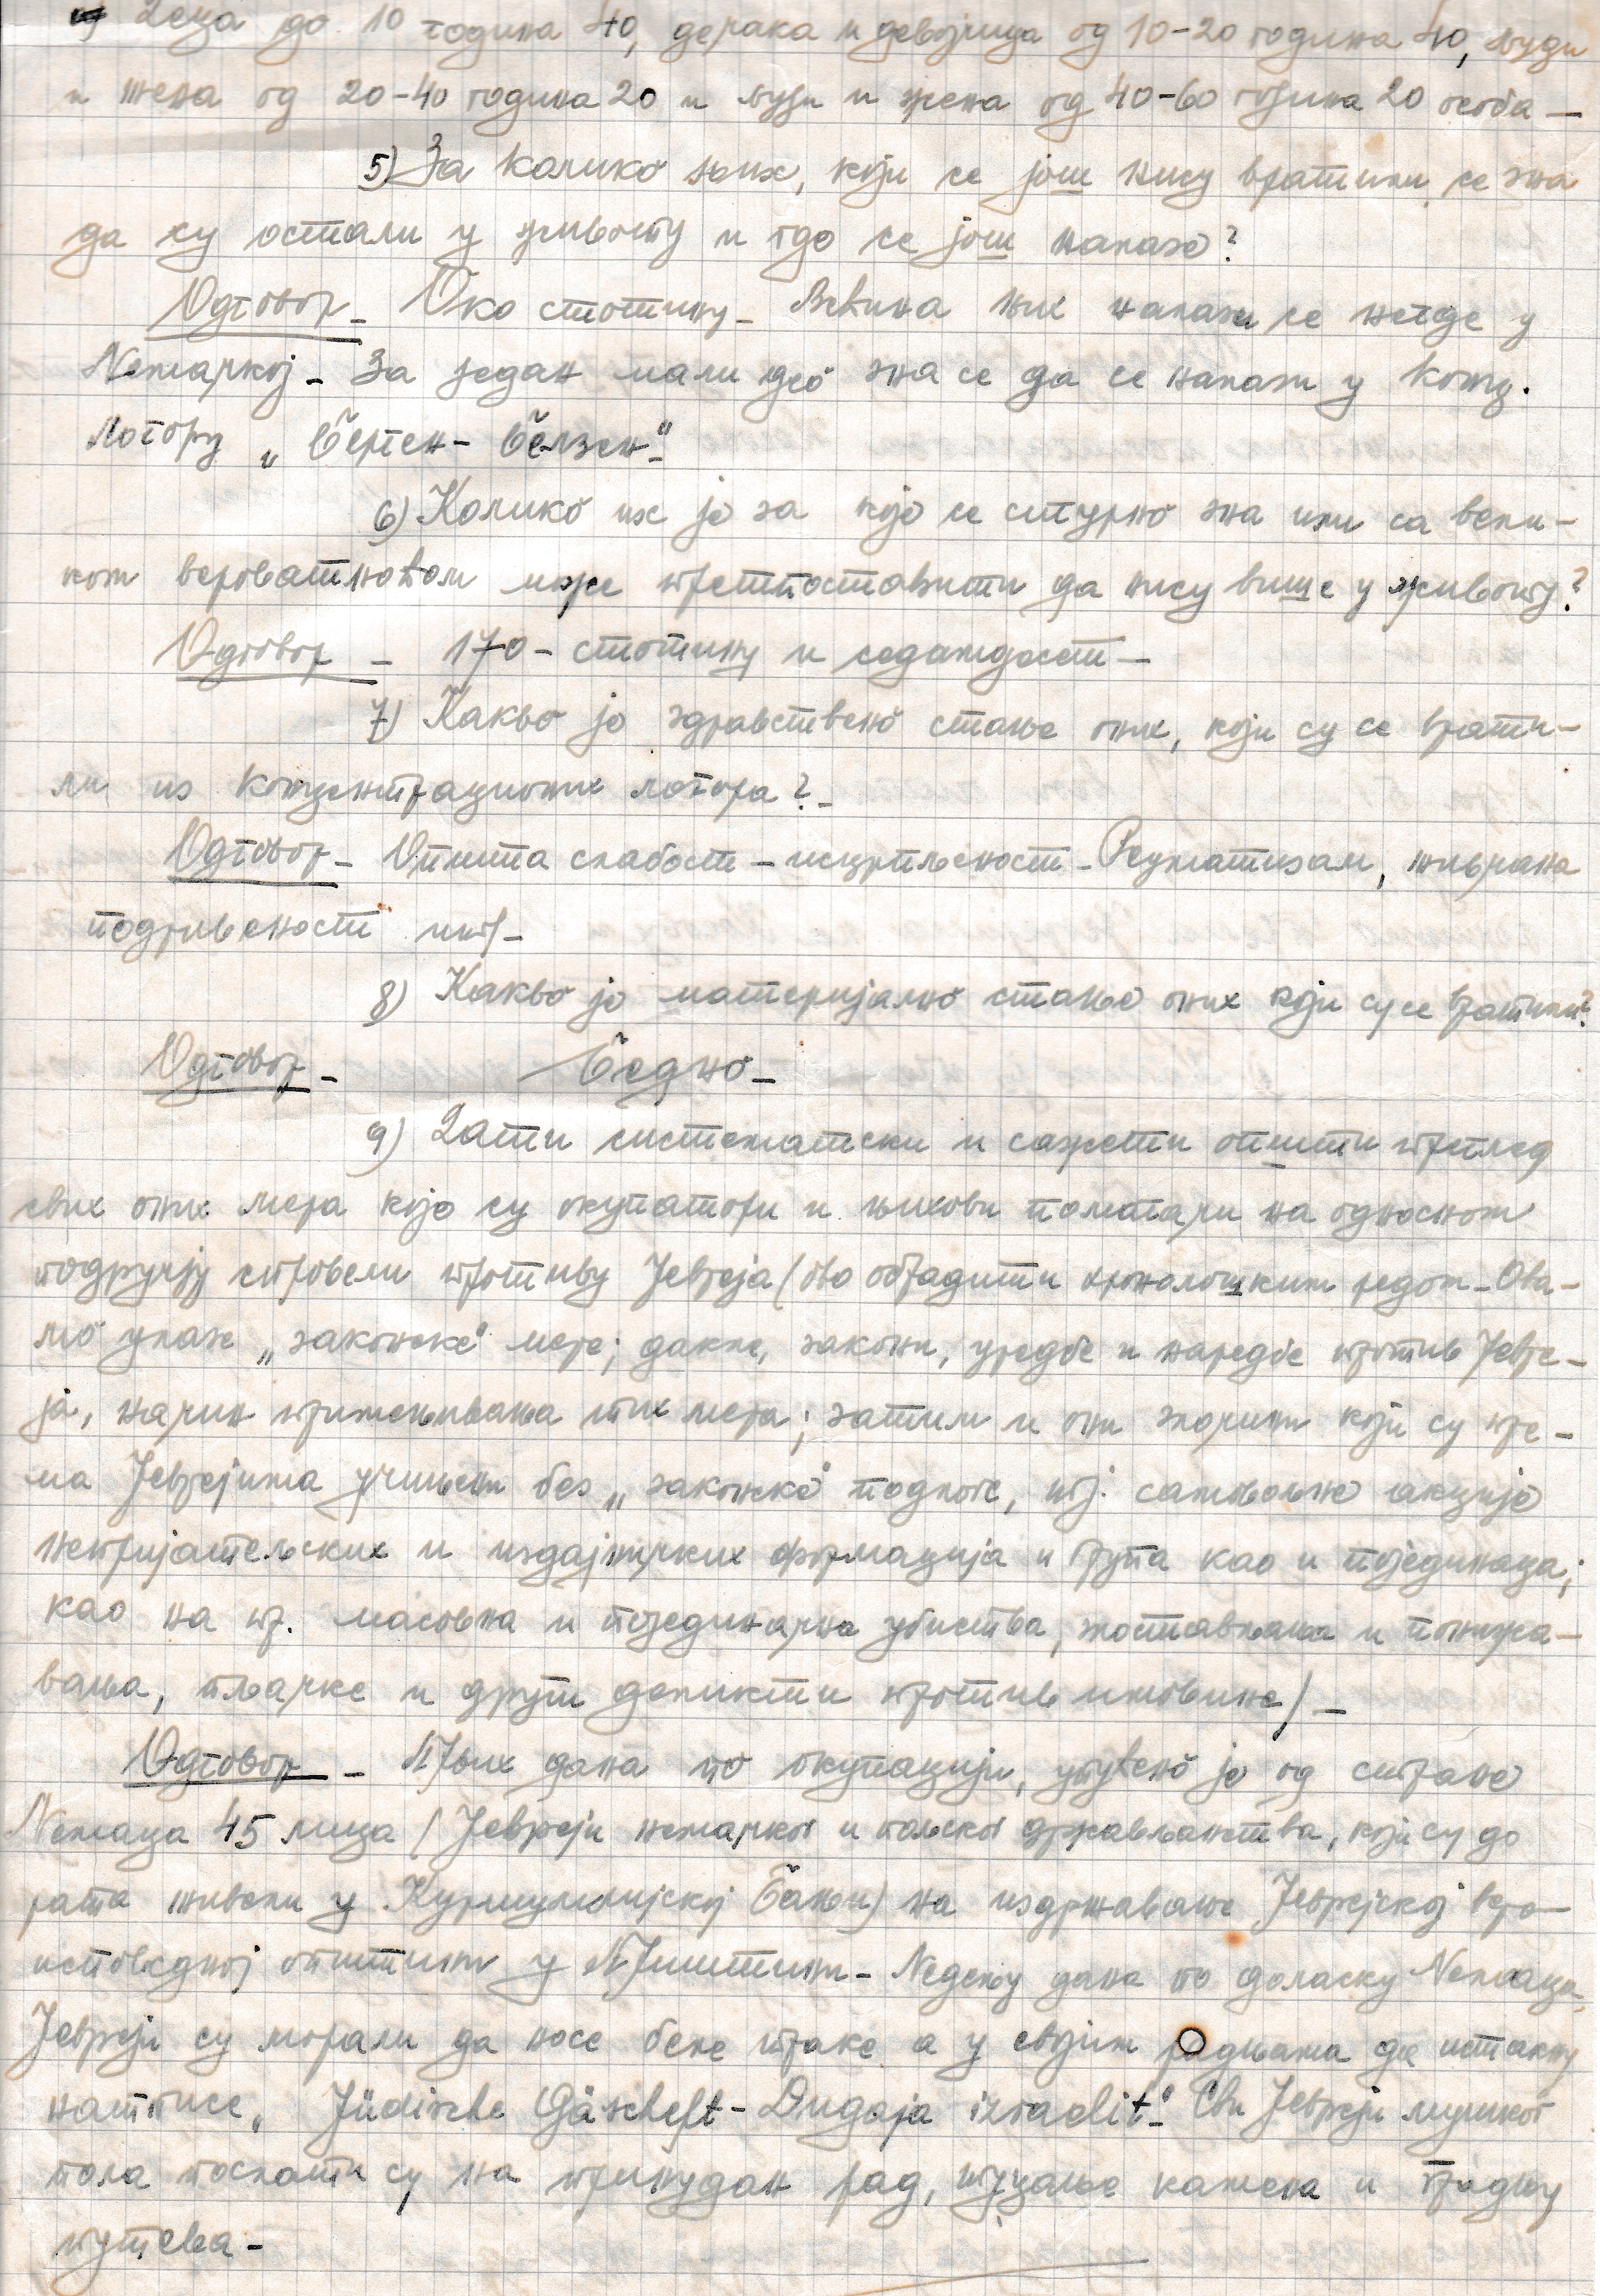 Деца до 10 година 40, дечака и девојчица од 10-20 година 40, људи
и жена од 20-40 година 20 и људи и жена од 40-60 година 20 особа —
5) За колико њих, који се још нису вратили се зна
да су остали у животу и где се још налазе?
Одговор – Око стотину – Већина њих налази се негде у
Немачкој – За један мали део зна се да се налази у конц.
логору „Берген - Белзен“ –
6) Колико их је за које се сигурно зна или са вели-
ком вероватноћом може претпоставити да нису више у животу?
Одговор – 170 – стотину и седамдесет –
7) Какво је здравствено стање оних, који су се врати-
ли из концентрационих логора? –
Одговор – Општа слабост – исцрпљеност – Реуматизам, живчана
подривеност итд –
8) Какво је материјално стање оних који су се вратили?
Одговор – Бедно –
9) Дати систематски и сажети општи преглед
свих оних мера које су окупатори и њихови помагачи на односном
подручју спровели противу Јевреја (ово обрадити хронолошким редом – Ова-
мо улазе „законске“ мере; дакле, закони, уредбе и наредбе против Јевре-
ја, начин примењивања тих мера; затим и они злочини који су пре-
ма Јеврејима учињени без „законске“ подлоге, тј. самовољне акције
непријатељских и издајничких формација и група као и појединаца;
као на пр. масовна и појединачна убиства, злостављања и понижа-
вања, пљачке и други деликти против имовине) –
Одговор – Првих дана по окупацији, упућено је од стране
Немаца 45 лица (Јевреји немачког и пољског држављанства, који су до
рата живели у Куршумлијској Бањи) на издржавање Јеврејској веро-
исповедној општини у Приштини – Недељу дана по доласку Немаца,
Јевреји су морали да носе беле траке а у својим радњама да истакну
натписе „Jüdische Gäscheft – Dugaja izraelit“. Сви Јевреји мушког
пола послати су на принудан рад, туцање камена и градњу
путева –